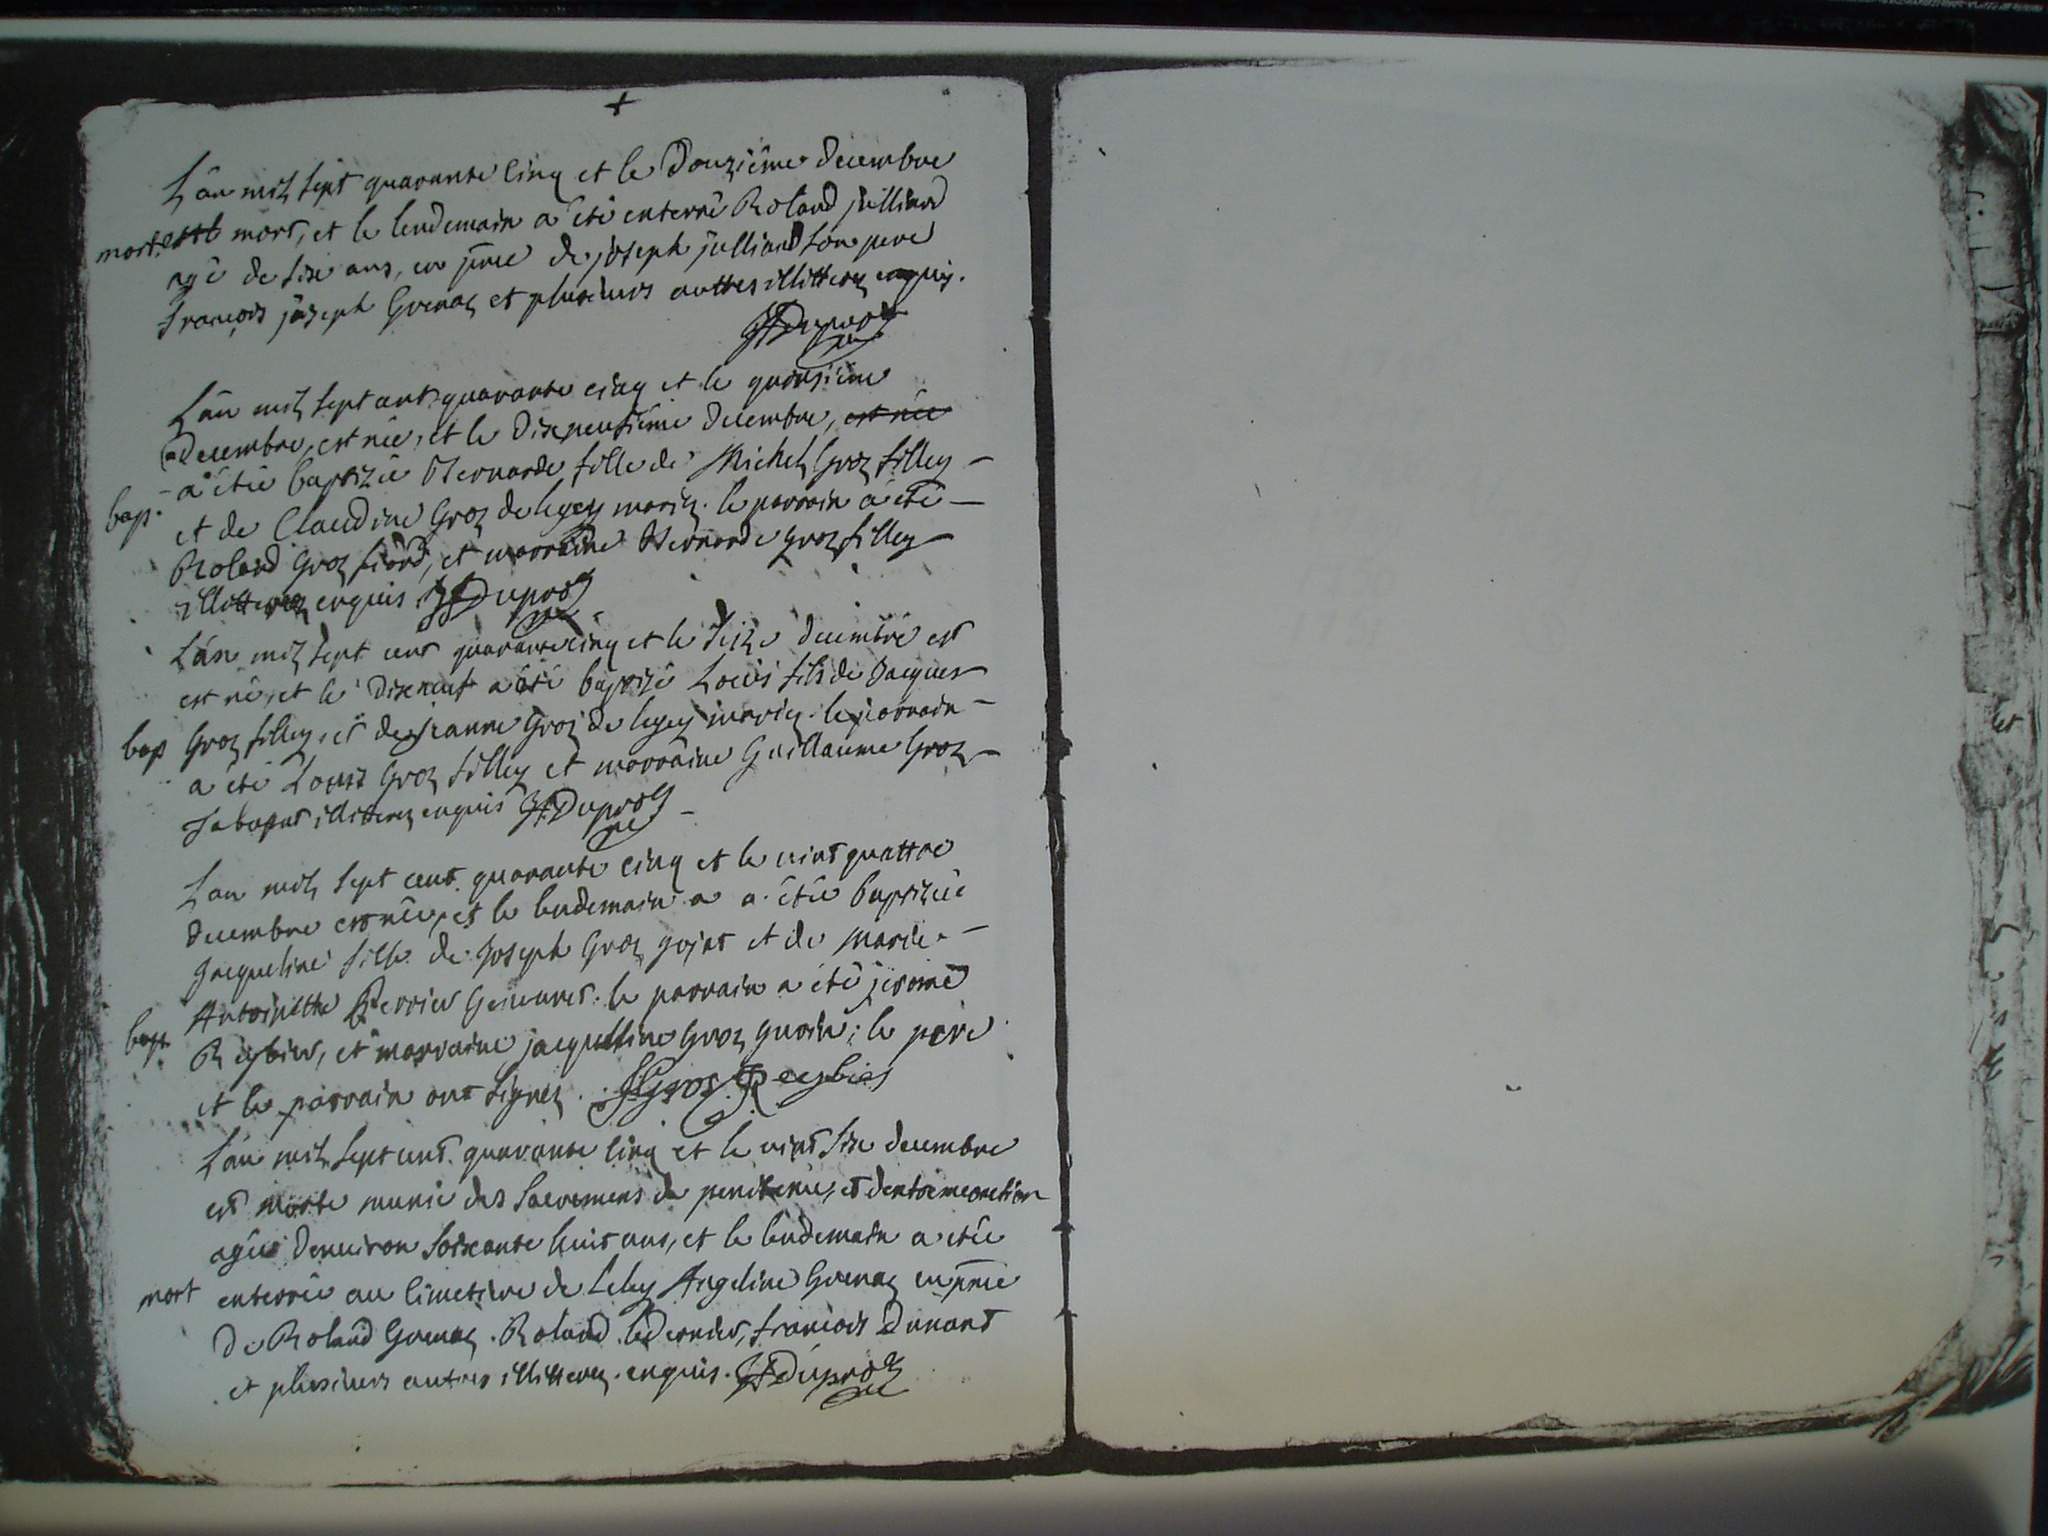 +
L'an mil sept quarante cinq et le Douzième decembre
mort. est mort, et le lendemain a été enterré Roland julliard
agé de six ans, en pnce de joseph julliard son pere
françois joseph Grenaz et plusieurs auttres illitterez enquis.
JfDuproz
L'an mil sept cent quarante cinq et le
decembre, est née, et le decembre, est née
bap. a étée baptizée Bernarde fille de Michel Groz filley
et de Claudine Groz de legey mariez. le parrain a été
Roland Groz fiard, et marraine Bernarde groz filley
illitterez enquis. JfDuproz
L'an mil sept cent quarante cinq et le seize decembre est
est né, et le dixneuf a été baptizé Louis fils de Jacques
bap Groz filley, et de jeanne Groz de legey mariez. le parrain
a été Louis Groz filley et marraine Guillaume Groz
illitterez enquis JfDuproz
L'an mil sept cent quarante cinq et le vint quattre
decembre est née, et le lendemain a a étée baptizée
jacqueline fille de Joseph Groz gojat et de Marie
Antoinette Perrier . le parrain a été jerome
bapt. Reybier, et marraine jacqueline Groz ; le pere
et le parrain ont signez. JGros. Reybier
L'an mil sept cent quarante cinq et le vint six decembre
est morte munie des sacremens de penitence, et d'extremeonction
agée denviron soixante huit ans, et le lendemain a étée
mort enterrée au cimetiere de Lelex Angeline Grenaz en pnce
de Roland Grenaz. Roland , françois Dunant
et plusieurs autres illitterez. enquis. JfDuproz